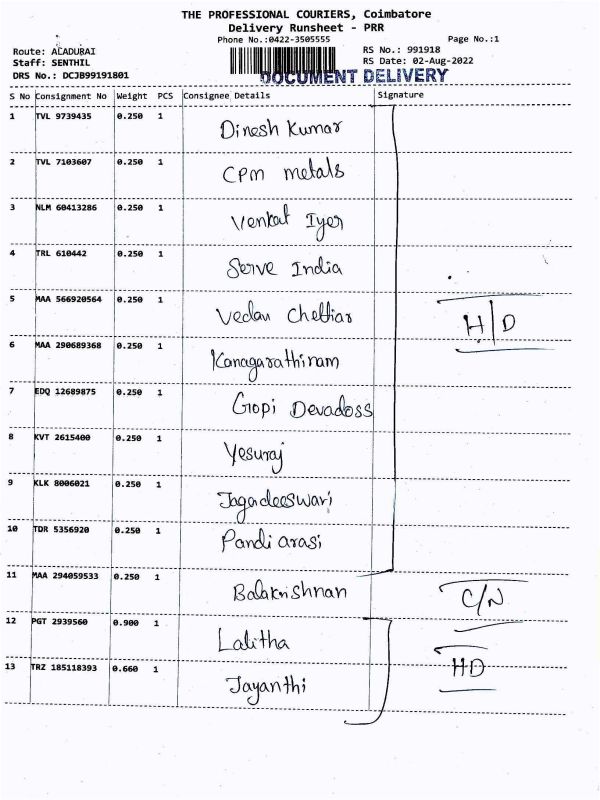 THE PROFESSIONAL COURIERS, Coimbatore
Delivery Runsheet - PRR
Phone No.:0422-3505555 Page No.:1
Route: ALADUBAI RS No.: 991918
Staff: SENTHIL RS Date: 02-Aug-2022
DRS No.: DCJB99191801 DOCUMENT DELIVERY
S No Consignment No Weight PCS Consignee Details Signature
1 TVL 9739435 0.250 1 Dinesh Kumar
2 TVL 7103607 0.250 1 CPM metals
3 NLM 60413286 0.250 1 Venkat Iyer
4 TRL 610442 0.250 1 Serve India
5 MAA 566920564 0.250 1 Vedan Chettiar H/D
6 MAA 290689368 0.250 1 Kanagarathinam
7 EDQ 12689875 0.250 1 Gopi Devadoss
8 KVT 2615400 0.250 1 Yesuraj
9 KLK 8006021 0.250 1 Jagadeeswari
10 TDR 5356920 0.250 1 Pandiarasi
11 MAA 294059533 0.250 1 Balakrishnan C/N
12 PGT 2939560 0.900 1 Lalitha
13 TRZ 185118393 0.660 1 Jayanthi HD